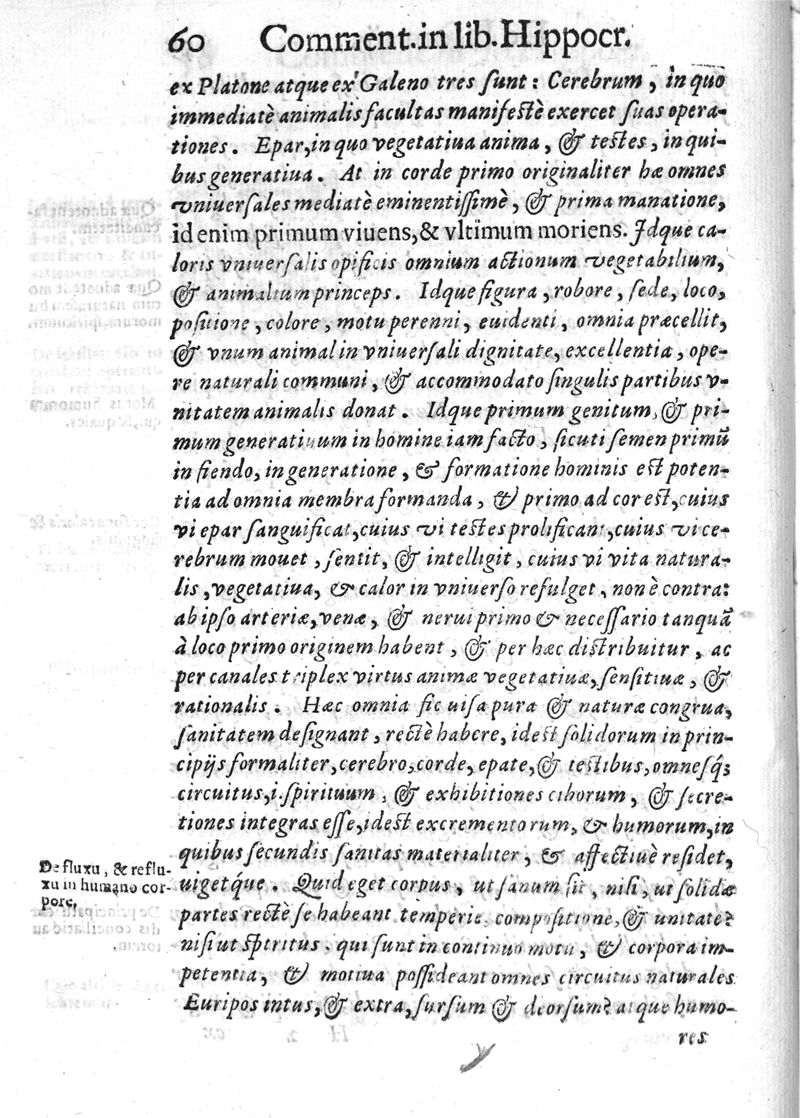 60 Comment. in lib. Hippocr.
ex Platone atque ex Galeno tres sunt: Cerebrum, in quo
immediatè animalis facultas manifestè exercet suas opera-
tiones. Epar, in quo vegetatiua anima, & testes, in qui-
bus generatiua. At in corde primo originaliter hæ omnes
vniuersales mediatè eminentissimè, & prima manatione,
id enim primum viuens, & vltimum moriens. Idque ca-
loris vniuersalis opificis omnium actionum vegetabilium,
& animalium princeps. Idque figura, robore, sede, loco,
positione, colore, motu perenni, euidenti, omnia præcellit,
& vnum animal in vniuersali dignitate, excellentia, ope-
re naturali communi, & accommodato singulis partibus v-
nitatem animalis donat. Idque primum genitum, & pri-
mum generatiuum in homine iam facto, sicuti semen primũ
in fiendo, in generatione, & formatione hominis est poten-
tia ad omnia membra formanda, & primo ad cor est, cuius
vi epar sanguificat, cuius vi testes prolificant, cuius vi ce-
rebrum mouet, sentit, & intelligit, cuius vi vita natura-
lis, vegetatiua, & calor in vniuerso refulget, non è contra:
ab ipso arteriæ, venæ, & nerui primo & necessario tanquã
à loco primo originem habent, & per hæc distribuitur, ac
per canales triplex virtus animæ vegetatiuæ, sensitiuæ, &
rationalis. Hæc omnia sic uisa pura & naturæ congrua,
sanitatem designant, rectè habere, idest solidorum in prin-
cipijs formaliter, cerebro, corde, epate, & testibus, omnesq́;
circuitus, i. spirituum, & exhibitiones ciborum, & secre-
tiones integras esse, idest excrementorum, & humorum, in
quibus secundis sanitas materialiter, & affectiuè residet,
uigetq́ue. Quid eget corpus, ut sanum sit, nisi, ut solidæ
partes rectè se habeant temperie, compositione, & unitate?
nisi ut spiritus, qui sunt in continuo motu, & corpora im-
petentia, & motiua possideant omnes circuitus naturales
Euripos intus, & extra, sursum & deorsum? atque humo-
res
De fluxu, & reflu-
xu in humano cor-
pore.